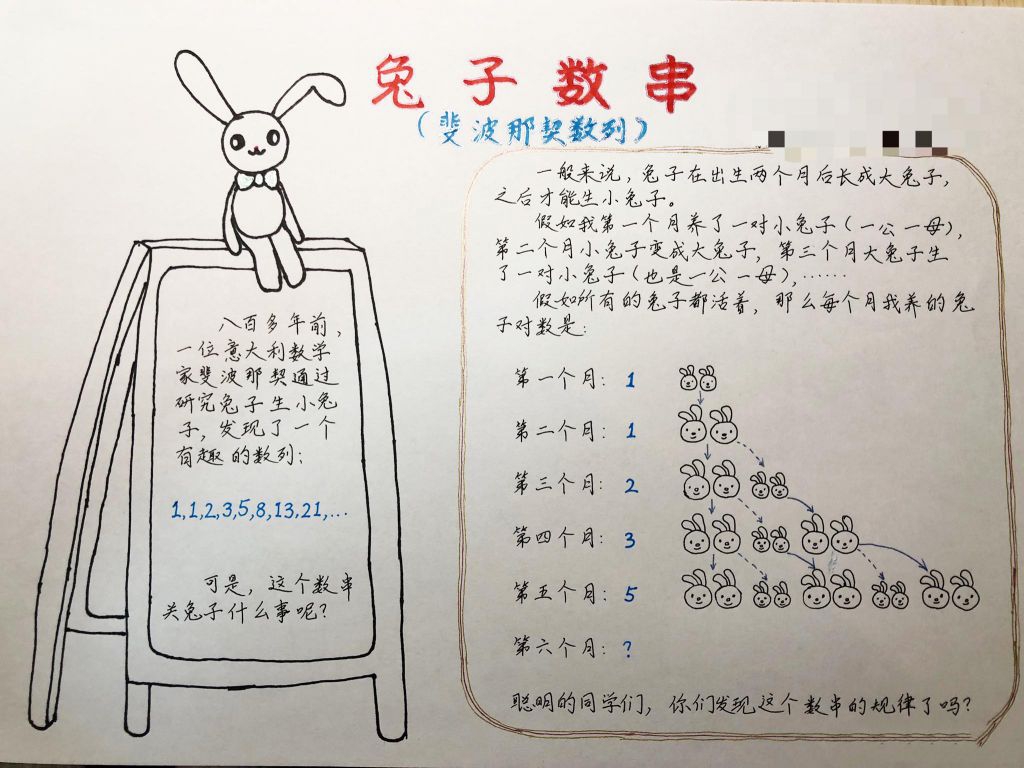 兔子数串
（斐波那契数列）
八百多年前，
一位意大利数学
家斐波那契通过
研究兔子生小兔
子，发现了一个
有趣的数列：
1,1,2,3,5,8,13,21,...
可是，这个数串
关兔子什么事呢？
一般来说，兔子在出生两个月后长成大兔子，
之后才能生小兔子。
假如我第一个月养了一对小兔子（一公一母），
第二个月小兔子变成大兔子，第三个月大兔子生
了一对小兔子（也是一公一母），……
假如所有的兔子都活着，那么每个月我养的兔
子对数是：
第一个月：1
第二个月：1
第三个月：2
第四个月：3
第五个月：5
第六个月：？
聪明的同学们，你们发现这个数串的规律了吗？